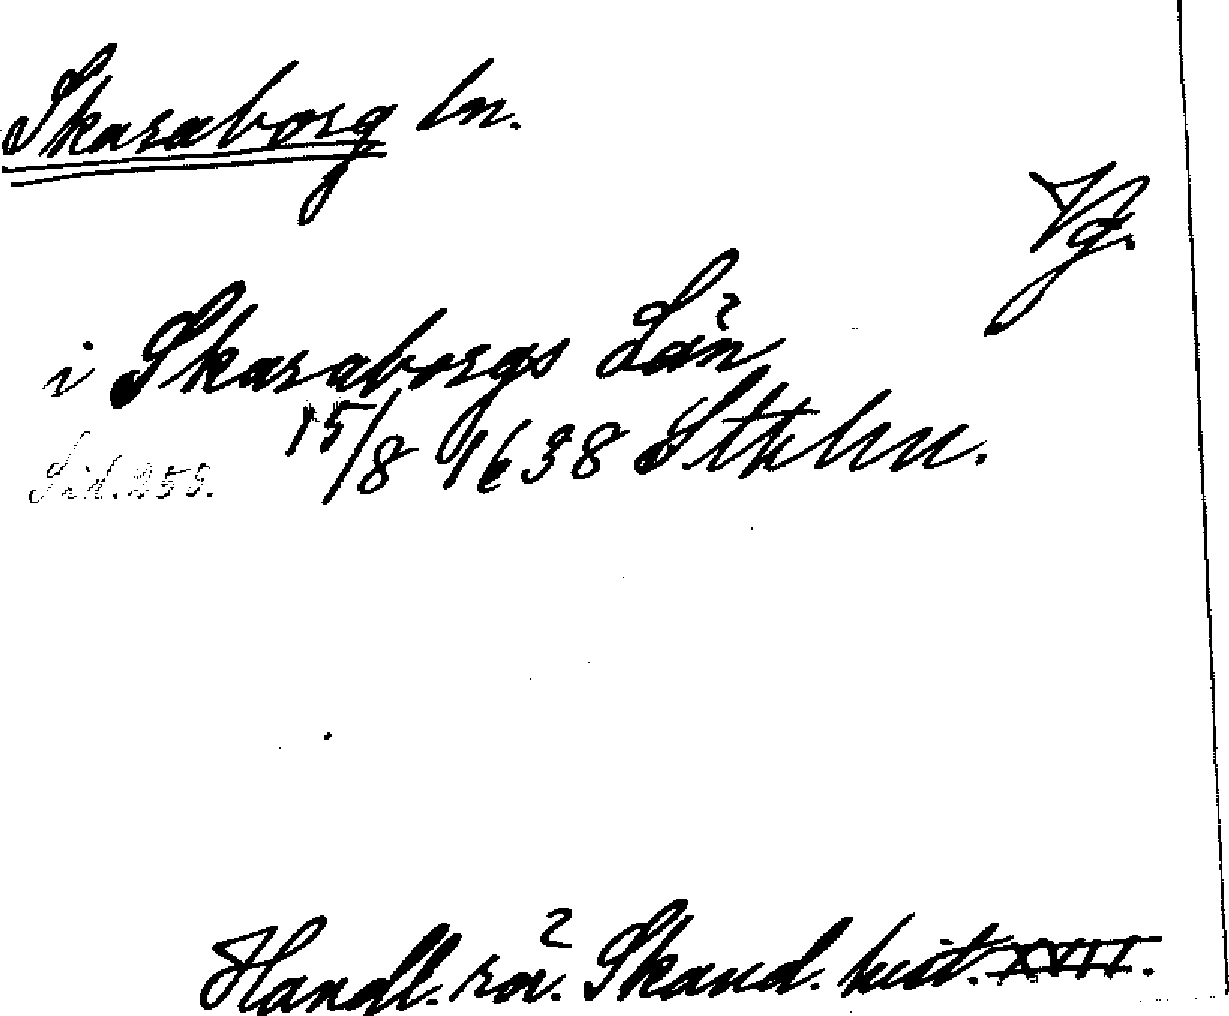 Skaraborg ln.
Vg.
i Skaraborgs Län
15/8 1638 Stkhlm.
Sid. 253.
Handl. rör. Skand. hist. XVII.